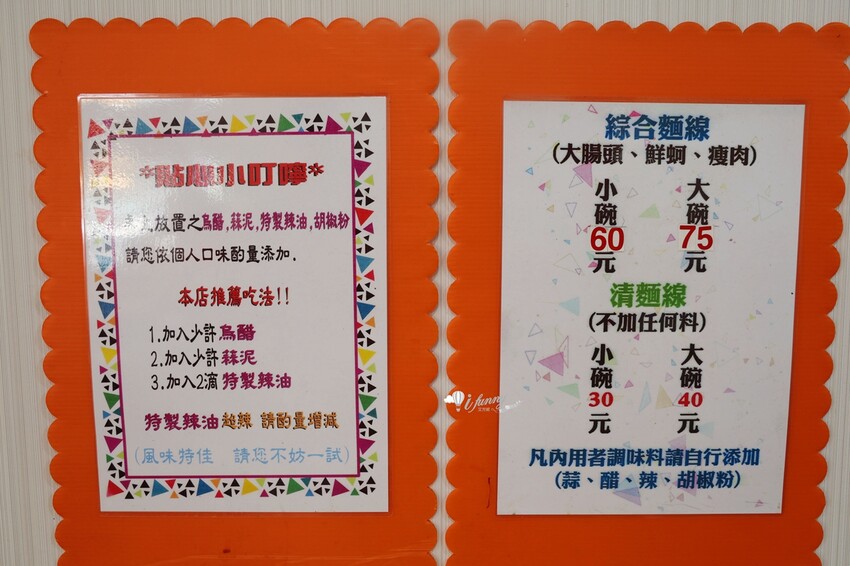 *貼心小叮嚀*
放置之烏醋,蒜泥,特製辣油,胡椒粉
請您依個人口味酌量添加.
本店推薦吃法!!
1.加入少許烏醋
2.加入少許蒜泥
3.加入2滴特製辣油
特製辣油超辣 請酌量增減
(風味特佳 請您不妨一試)
綜合麵線
(大腸頭、鮮蚵、瘦肉)
小碗60元
大碗75元
清麵線
(不加任何料)
小碗30元
大碗40元
凡內用者調味料請自行添加
(蒜、醋、辣、胡椒粉)
i funny